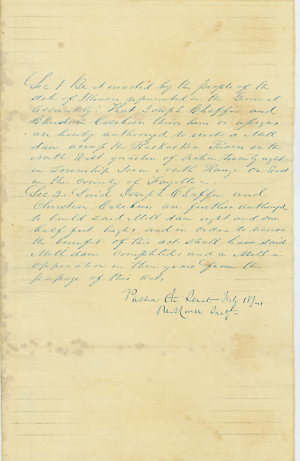 Sec 1 Be it enacted by the people of the
State of Illinois represented in the General
Assembly: That Joseph Chaffin and
Christian their heirs or assigns
are hereby authorized to erect a Mill
dam across the Kaskaskia River on the
North East quarter of Section twenty eight
in Township North Range One East
in the County of Fayette
Sec 2. Said Joseph Chaffin and
Christian are further authorized
to build said Mill dam eight and one
half feet high, and in order to secure
the benefit of this act shall have said
Mill dam Completed and a Mill in
Operation in three years from the
passage of this Act
Passed the Senate Feby 18